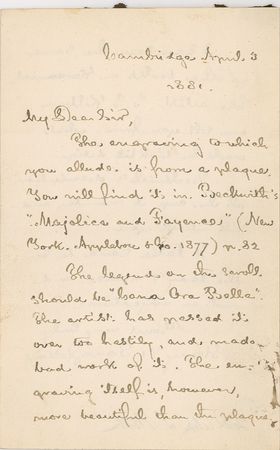 Cambridge April 3
1881.
My Dear Sir,
The engraving to which
you allude is from a plaque.
You will find it in Beckwith's
"Majolica and Fayence" (New
York. Appleton & Co. 1877) p. 32
The legend on the scroll
should be "Cana Ora Bella".
The artist has passed it
over too hastily, and made
bad work of it. The en-
graving itself is, however,
more beautiful than the plaque,